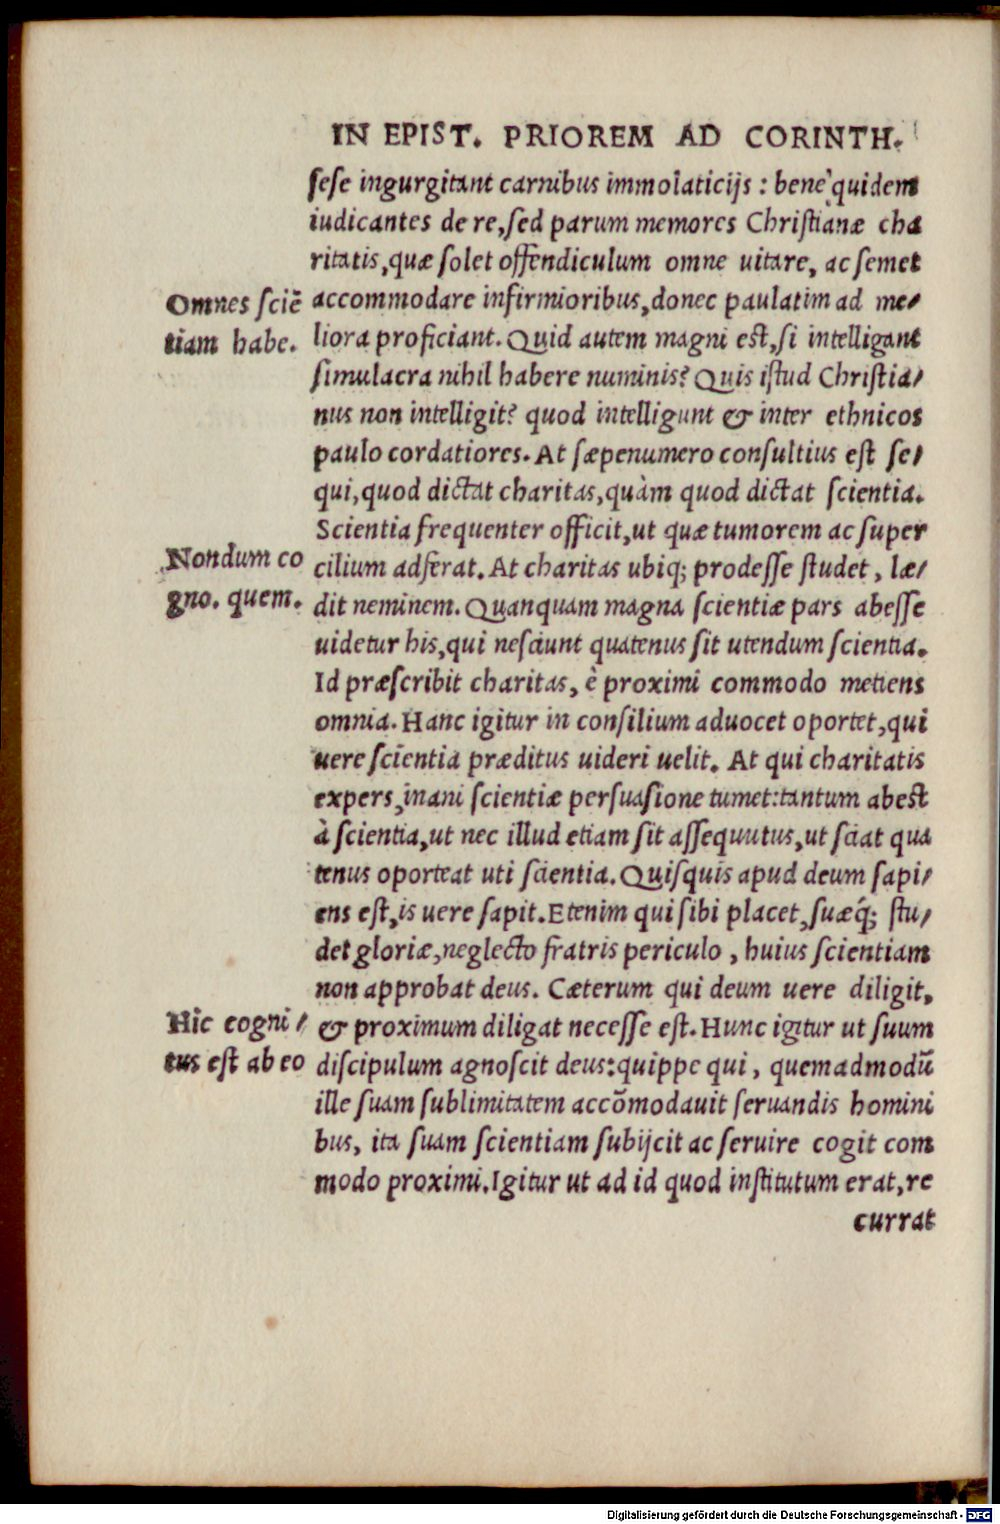 IN EPIST. PRIOREM AD CORINTH.
ſeſe ingurgitant carnibus immolaticijs : bene quidem
iudicantes de re,ſed parum memores Chriſtianæ cha
ritatis,quæ ſolet offendiculum omne uitare, ac ſemet
Omnes ſciē
accommodare infirmioribus,donec paulatim ad me/
tiam habe.
liora proficiant. Quid autem magni eſt,ſi intelligant
ſimulacra nihil habere numinis? Quis iſtud Chriſtia/
nus non intelligit? quod intelligunt & inter ethnicos
paulo cordatiores. At ſæpenumero conſultius eſt ſe/
qui,quod dictat charitas,quàm quod dictat ſcientia.
Scientia frequenter officit,ut quæ tumorem ac ſuper
Nondum co
cilium adferat. At charitas ubiq; prodeſſe ſtudet , læ/
gno. quem.
dit neminem. Quanquam magna ſcientiæ pars abeſſe
uidetur his,qui neſciunt quatenus ſit utendum ſcientia.
Id præſcribit charitas, è proximi commodo metiens
omnia. Hanc igitur in conſilium aduocet oportet,qui
uere ſcientia præditus uideri uelit. At qui charitatis
expers,inani ſcientiæ perſuaſione tumet:tantum abeſt
à ſcientia,ut nec illud etiam ſit aſſequutus,ut ſciat qua
tenus oporteat uti ſcientia. Quiſquis apud deum ſapi/
ens eſt,is uere ſapit. Etenim qui ſibi placet,ſuæq́; ſtu/
det gloriæ,neglecto fratris periculo , huius ſcientiam
non approbat deus. Cæterum qui deum uere diligit,
Hic cogni/
& proximum diligat neceſſe eſt. Hunc igitur ut ſuum
tus eſt ab eo
diſcipulum agnoſcit deus:quippe qui, quemadmodū
ille ſuam ſublimitatem accōmodauit ſeruandis homini
bus, ita ſuam ſcientiam ſubijcit ac ſeruire cogit com
modo proximi. Igitur ut ad id quod inſtitutum erat,re
currat
Digitalisierung gefördert durch die Deutsche Forschungsgemeinschaft - DFG